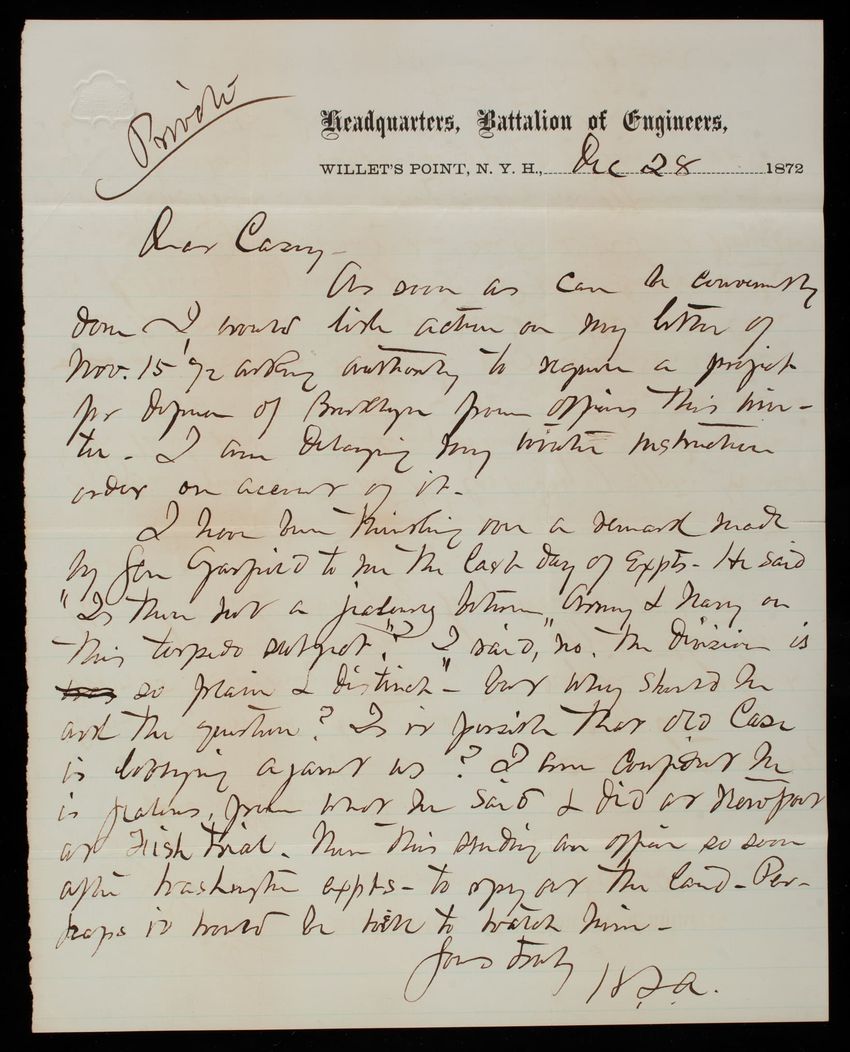 Private
Headquarters, Battalion of Engineers,
WILLET'S POINT, N. Y. H., Dec 28 1872
Dear Casey -
As soon as can be conveniently
done I would like action on my letter of
Nov. 15 '72 asking authority to require a project
for defense of Brooklyn from officers this win-
ter - I am delaying my winter instruction
order on account of it.
I have been thinking over a remark made
by Gen Garfield to me the last day of expts - He said
"Is there not a jealousy between Army & Navy on
this torpedo subject"? I said, "no. The division is
so plain & distinct" - but why should he
ask the question? Is it possible that old Case
is lobbying against us? I am confident he
is jealous, from what he said & did at Newport
at Fish trial. Then this sending an officer so soon
after Washington expts - to spy out the land - Per-
haps it would be well to watch him -
Yours truly
H L A.